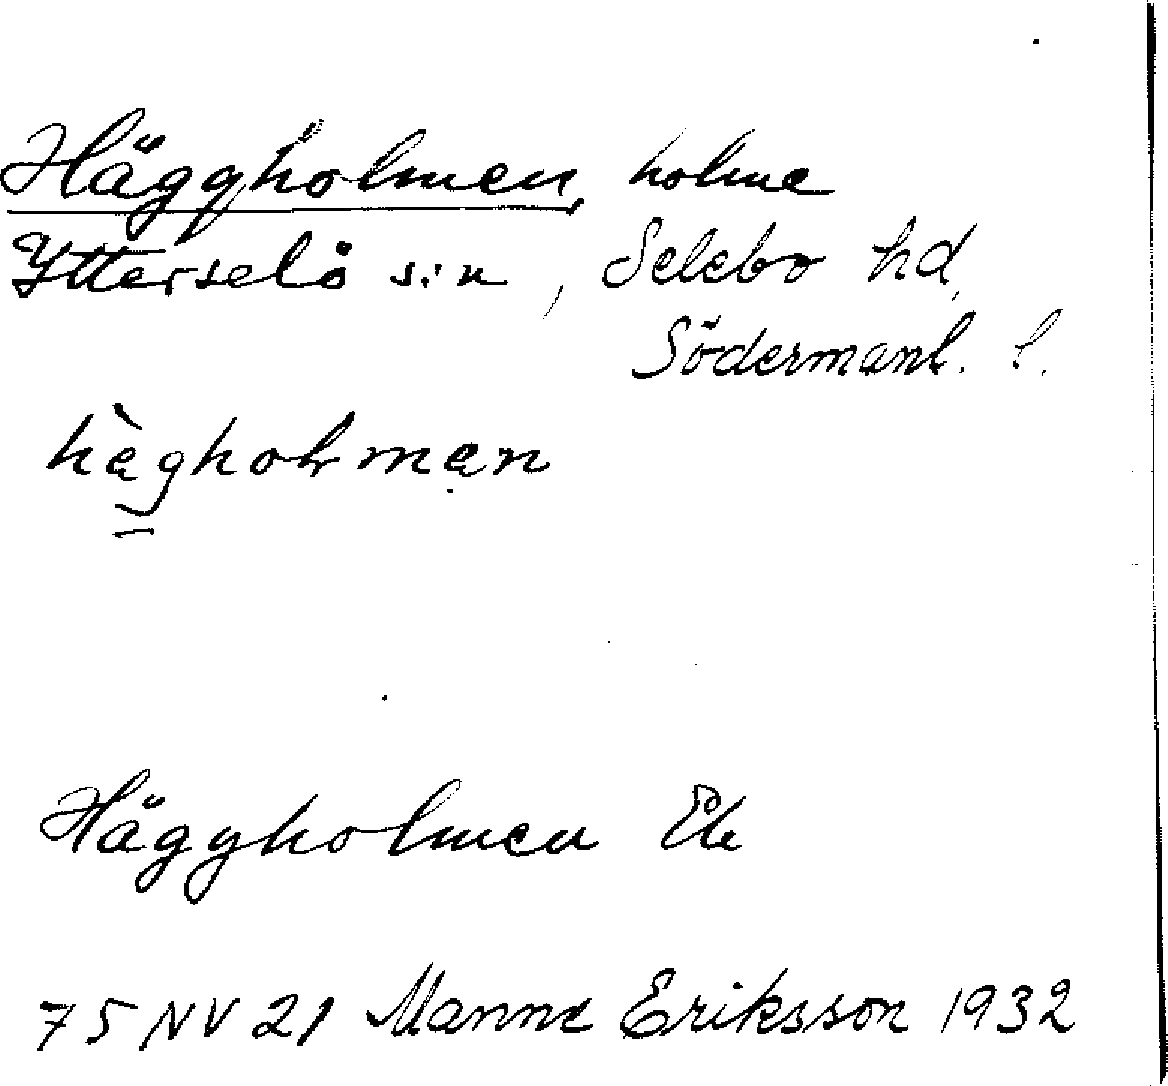 Häggholmen, holme
Ytterselö s:n, Selebo hd,
Södermanl. l.
hægholmen
Häggholmen Ek
75 NV 21 Manne Eriksson 1932